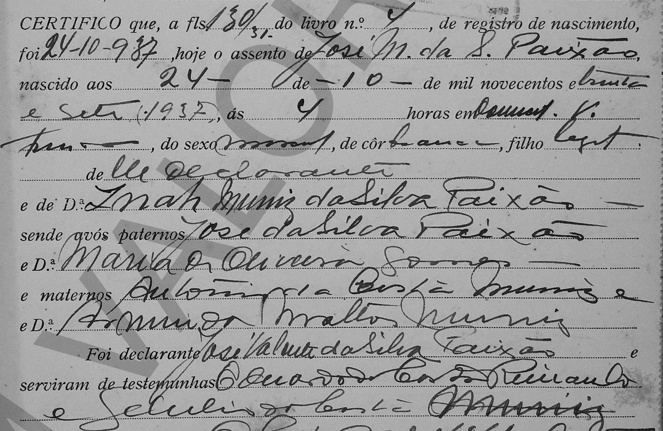 CERTIFICO que, a fls. 130/31 do livro n.º 4, de registro de nascimento,
foi 24-10-937, hoje o assento de José M. da S. Paixão,
nascido aos 24 — de — 10 — de mil novecentos e trinta
e sete (1937), ás 4 horas em
, do sexo masc, de côr branca, filho legit.
de declarante
e de D.ª Inah Muniz da Silva Paixão
sende avós paternos José da Silva Paixão
e D.ª Maria de Oliveira Gomes
e maternos Antonio da Costa Muniz e
e D.ª Arminda Mattos Muniz
Foi declarante José da Silva Paixão e
serviram de testemunhas da Costa
e Getulio da Costa Muniz
VALOR